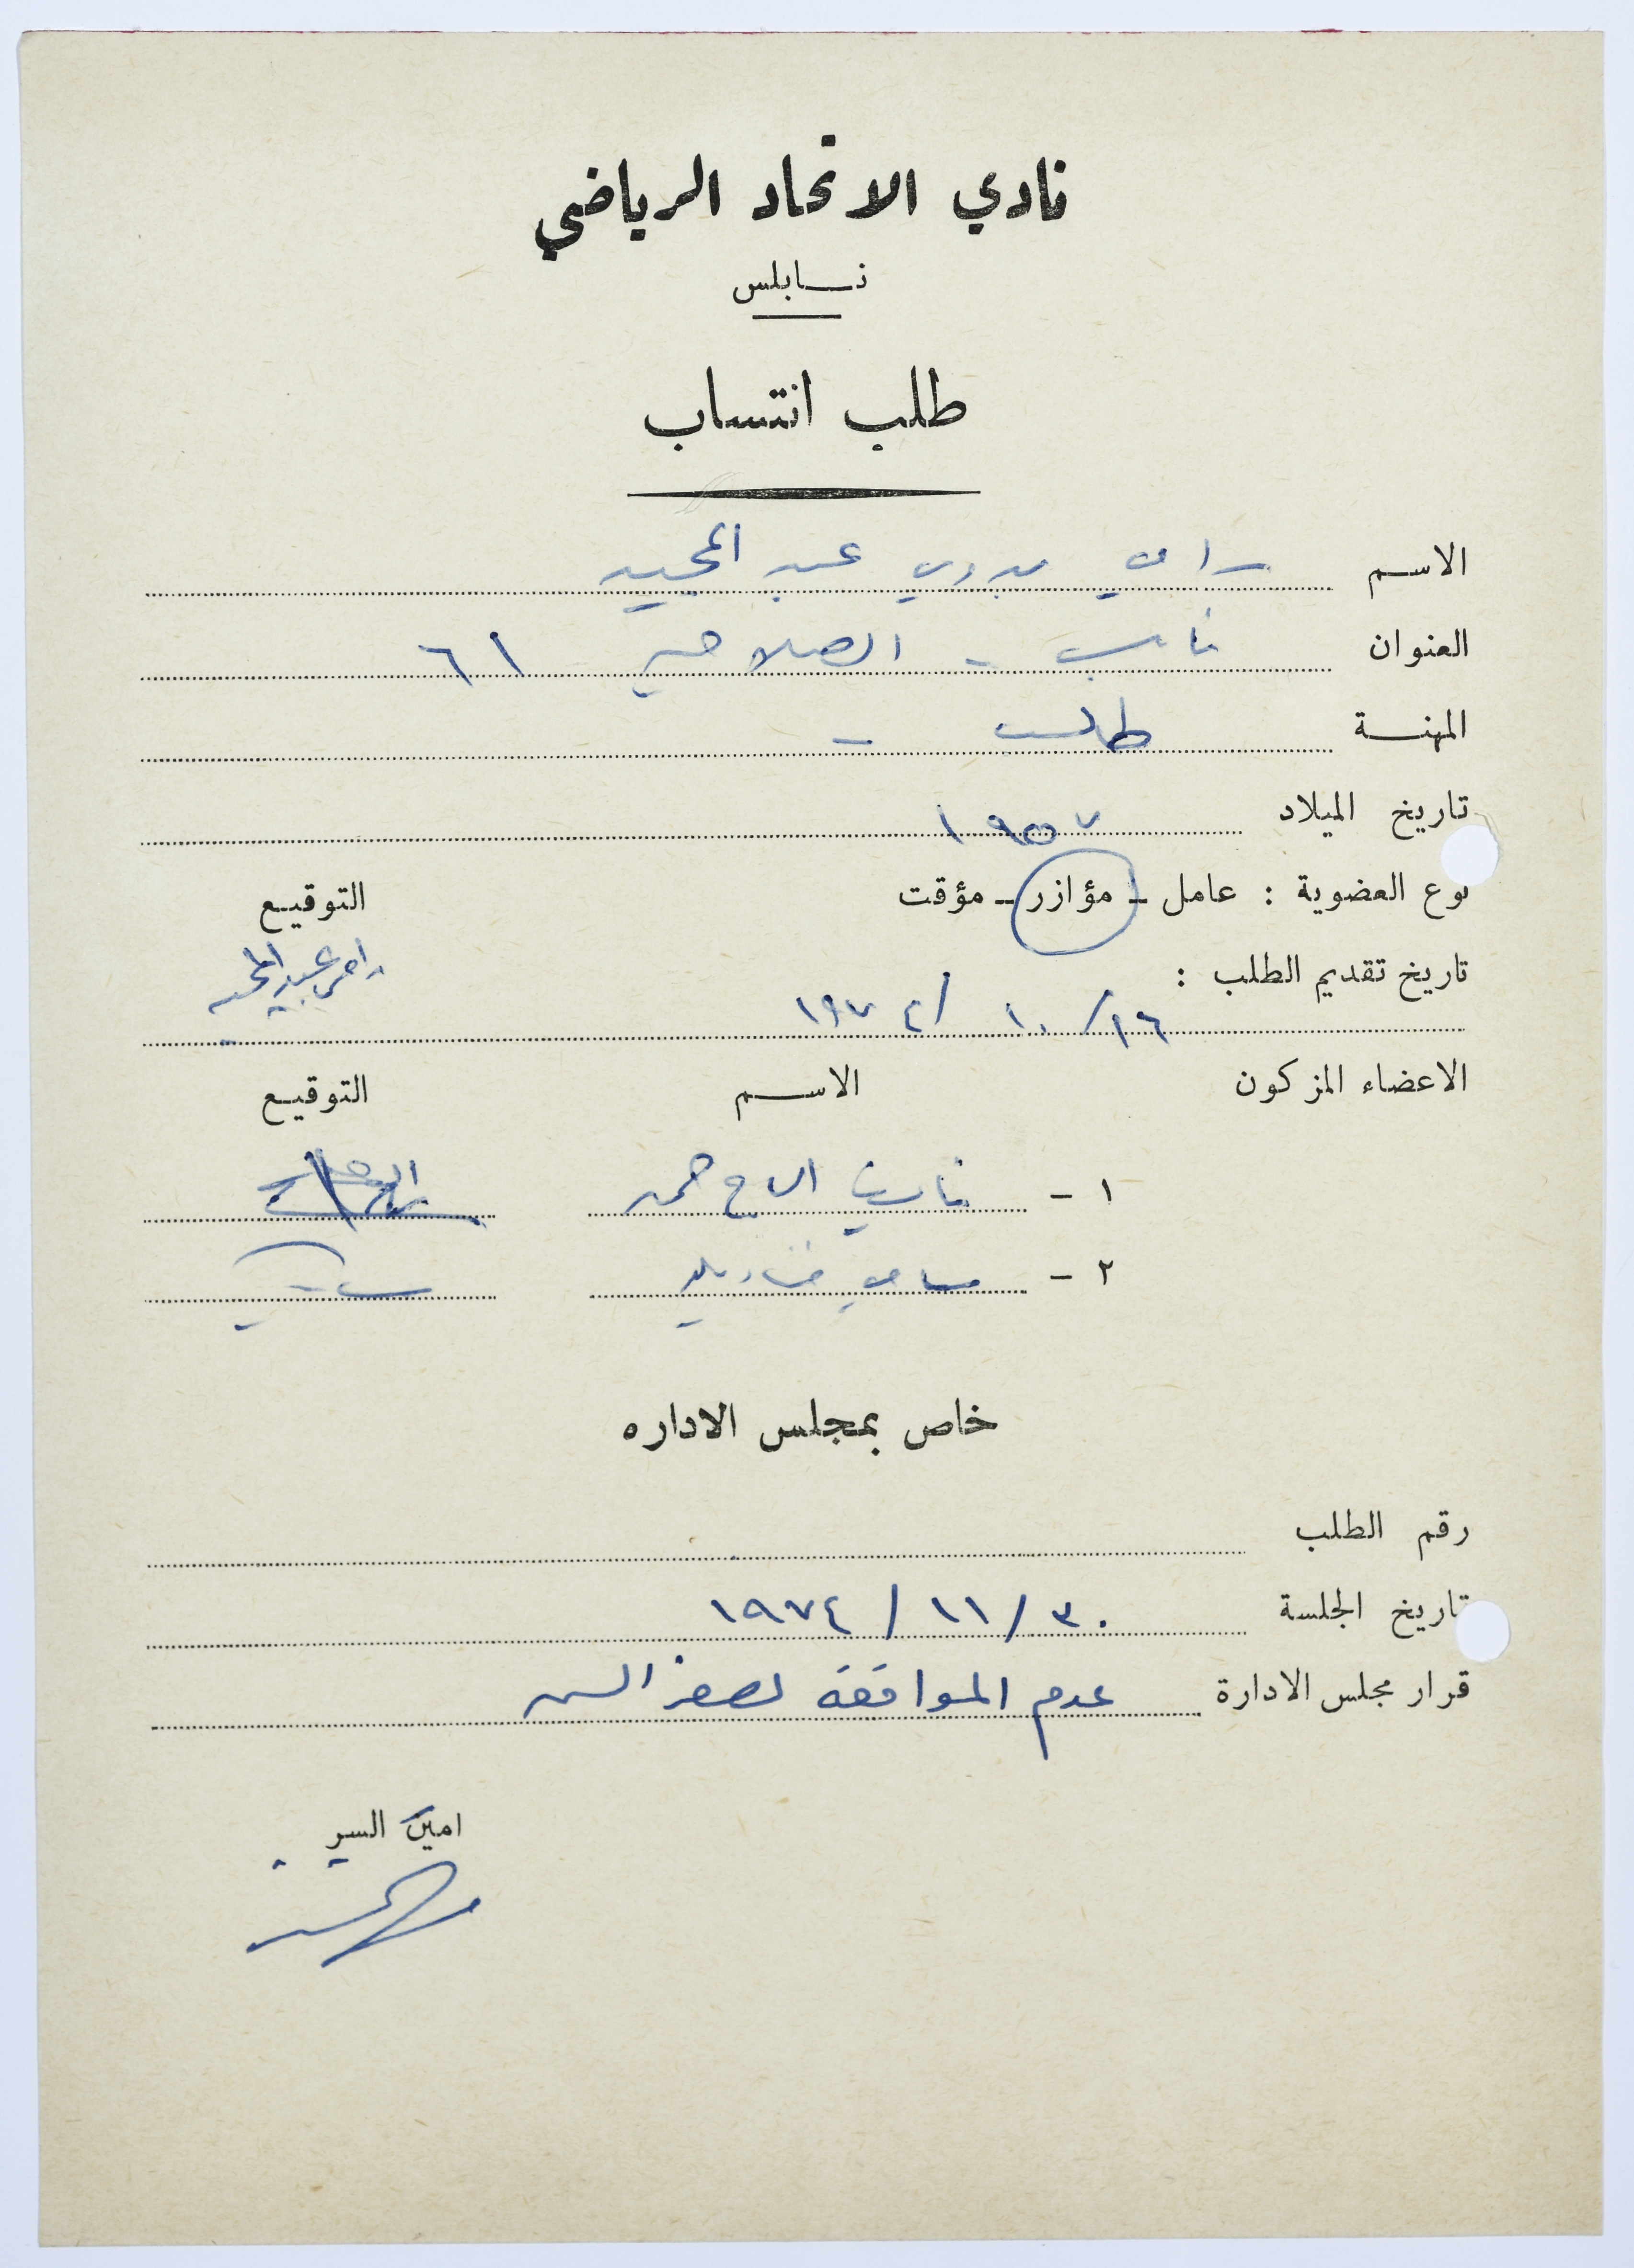 نادي الاتحاد الرياضي
نابلس
طلب انتساب
الاسم رامي بدوي عبد المجيد
العنوان نابلس - الصلاحية ٦١
المهنة طالب -
تاريخ الميلاد ١٩٥٧
نوع العضوية : عامل - مؤازر - مؤقت التوقيع
تاريخ تقديم الطلب : رامي عبد المجيد
١٦ / ١٠ / ١٩٧٤
الاعضاء المزكون الاسم التوقيع
١ -
٢ - سامي
خاص بمجلس الاداره
رقم الطلب
تاريخ الجلسة ٣٠ / ١١ / ١٩٧٤
قرار مجلس الادارة عدم الموافقة لصغر السن
امين السر